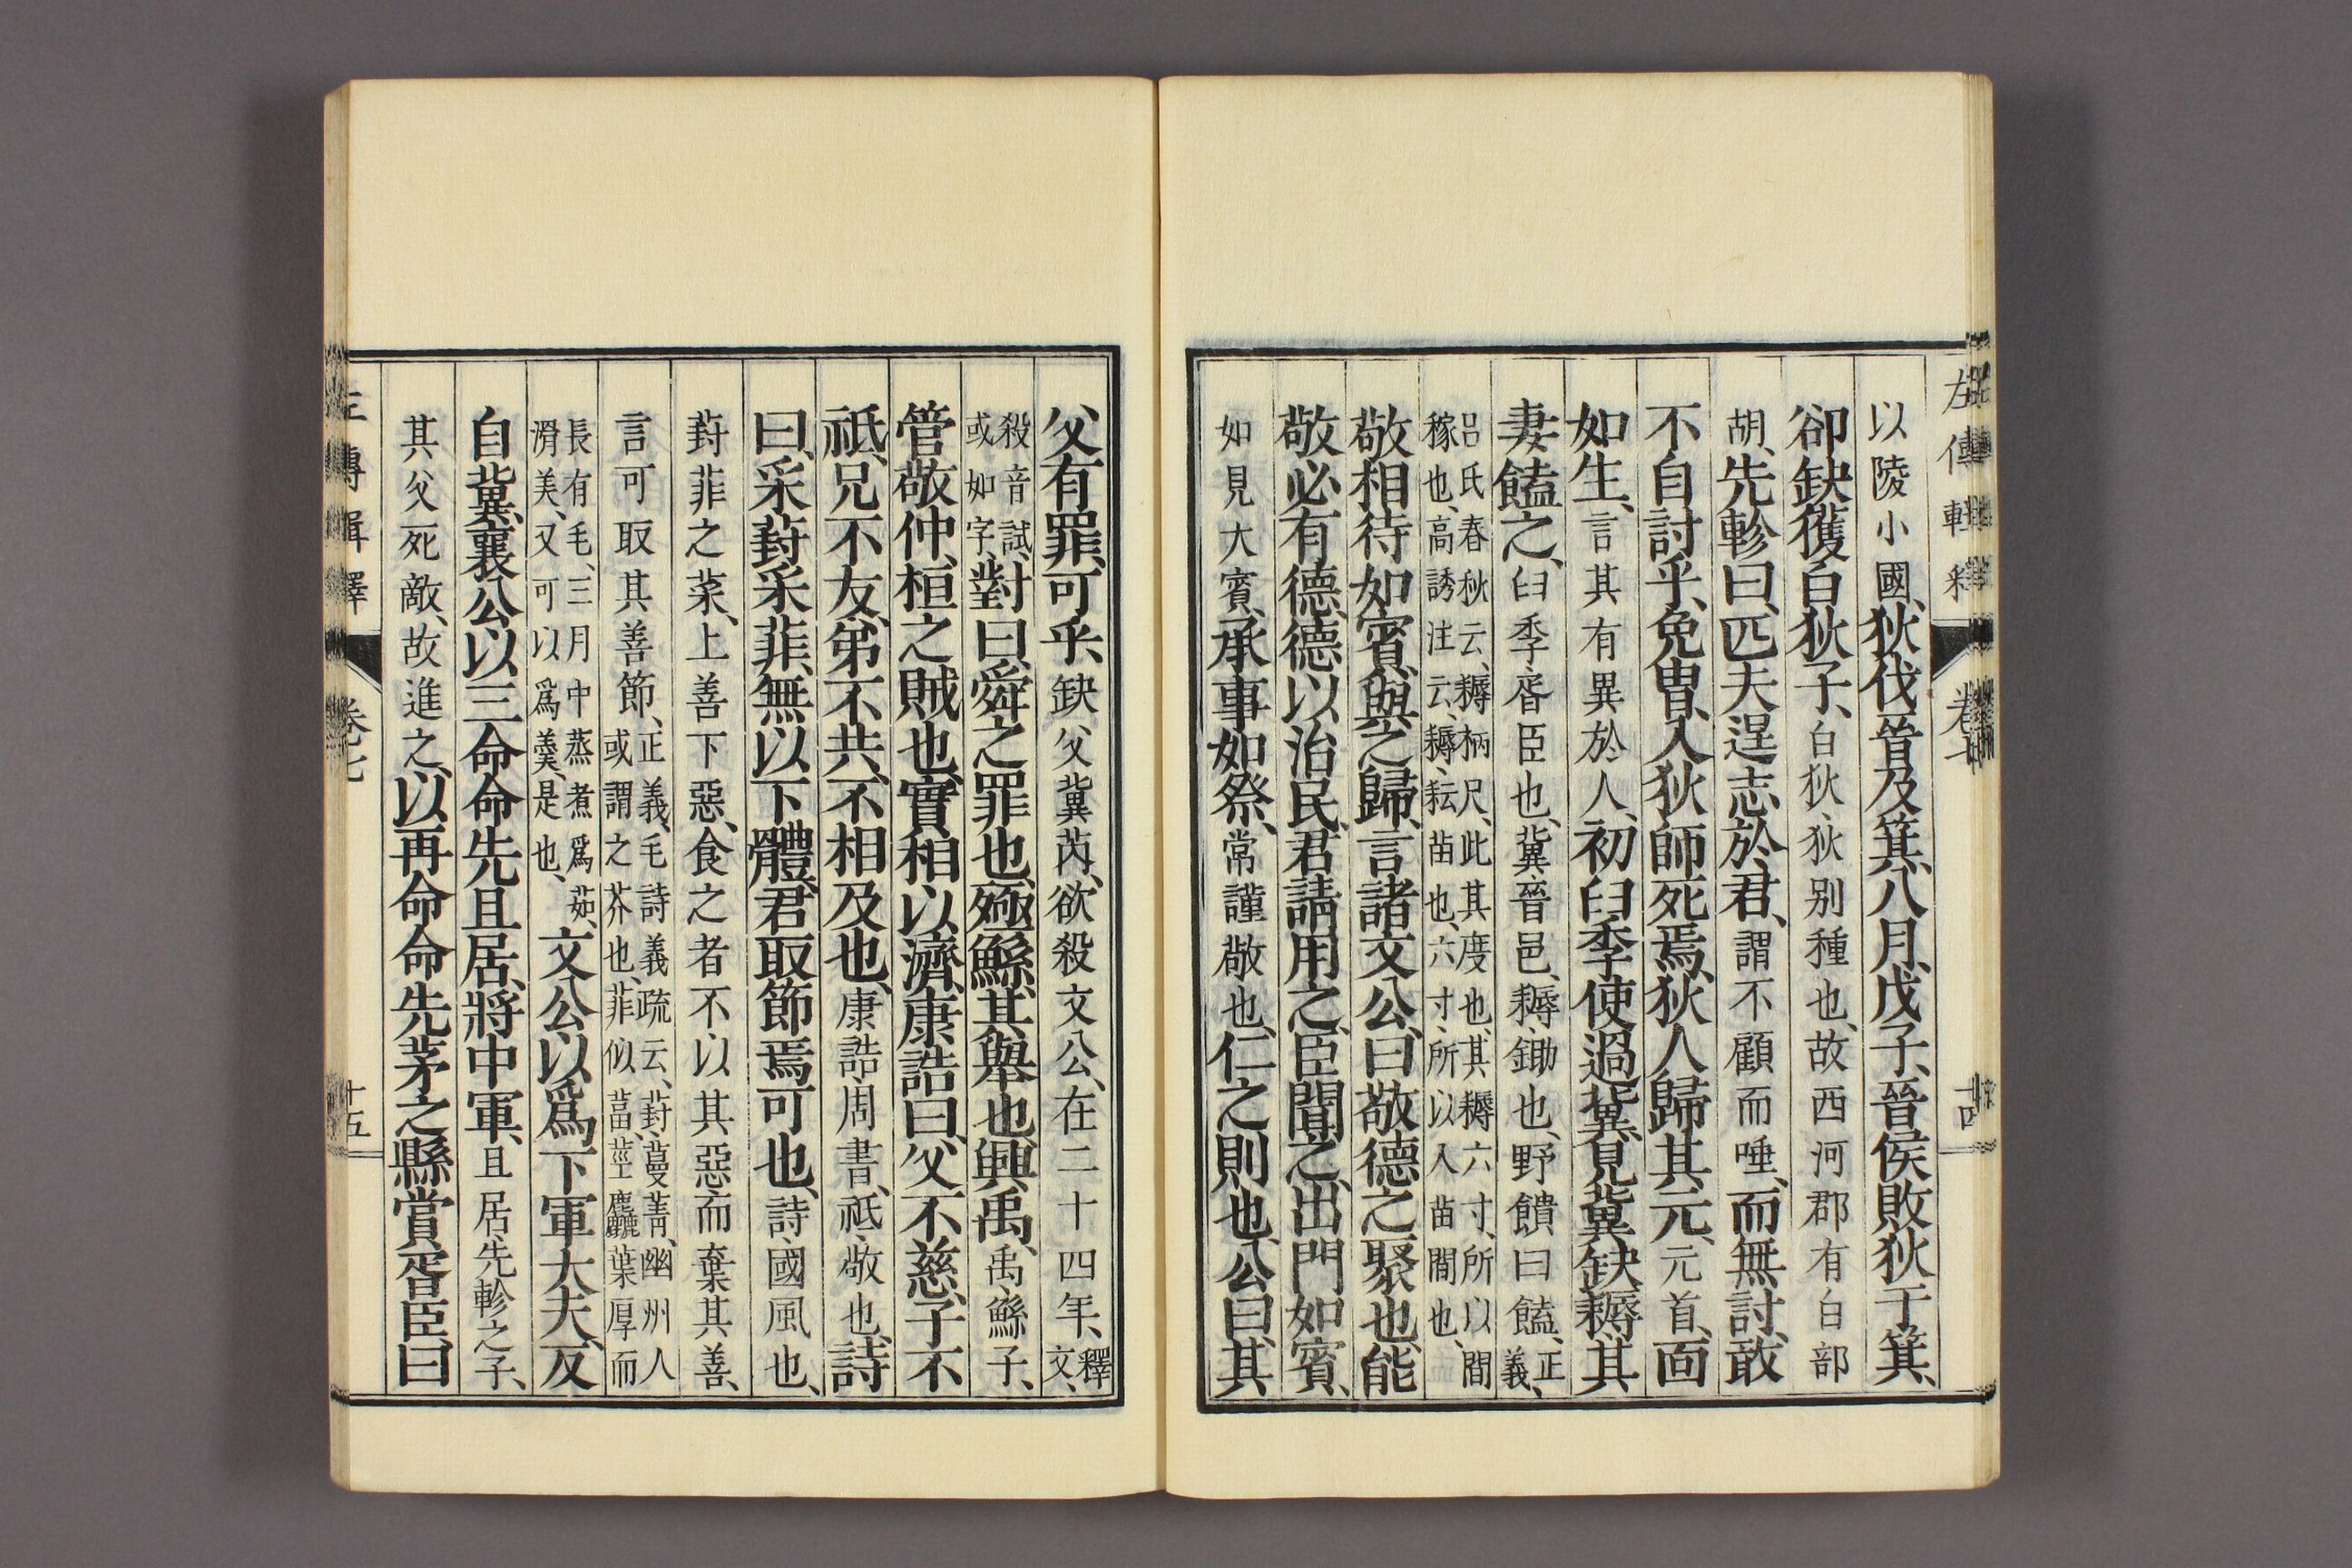 以陵小國、狄伐晉及箕、八月、戊子、晉侯敗狄于箕、
卻缺獲白狄子、白狄、狄別種也、故西河郡有白部
胡、先軫曰、匹夫逞志於君、謂不顧而唾、而無討、敢
不自討乎、免冑、入狄師死焉、狄人歸其元、元首、面
如生、言其有異於人、初臼季使過冀、見冀缺耨、其
妻饁之、臼季胥臣也、冀晉邑、耨、鋤也、野饋曰饁、正義、
呂氏春秋云、耨柄尺、此其度也、其耨六寸、所以間
稼也、高誘注云、耨、耘苗也、六寸、所以入苗間也、
敬相待如賓、與之歸、言諸文公、曰敬德之聚也、能
敬必有德、德以治民、君請用之、臣聞之、出門如賓、
如見大賓、承事如祭、常謹敬也、仁之則也、公曰、其
左傳輯釋
卷七
十四
父有罪、可乎、缺父冀芮、欲殺文公、在二十四年、釋文、
殺音試、或如字、對曰、舜之罪也、殛鯀、其舉也、興禹、禹、鯀子、
管敬仲、桓之賊也、實相以濟、康誥曰、父不慈、子不
祗、兄不友、弟不共、不相及也、康誥、周書、祗、敬也、詩
曰、采葑采菲、無以下體、君取節焉可也、詩、國風也、
葑菲之菜、上善下惡、食之者不以其惡而棄其善、
言可取其善節、正義、毛詩義疏云、葑、蔓菁、幽州人
或謂之芥也、菲似葍、莖麤葉厚而
長有毛、三月中蒸煮爲茹、
滑美、又可以爲羹、是也、文公以爲下軍大夫、反
自冀、襄公以三命命先且居、將中軍、且居、先軫之子、
其父死敵、故進之、以再命命先茅之縣賞胥臣、曰
左傳輯釋
卷七
十五